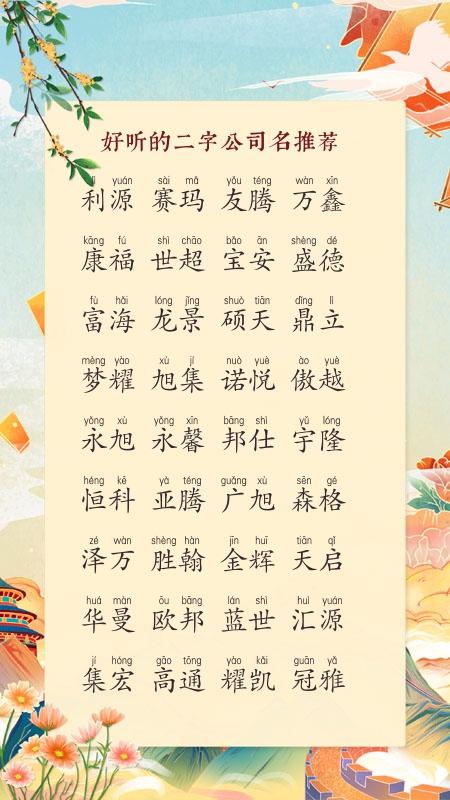 好听的二字公司名推荐
lì yuán sài mǎ yǒu téng wàn xīn
利源 赛玛 友腾 万鑫
kāng fú shì chāo bǎo ān shèng dé
康福 世超 宝安 盛德
fù hǎi lóng jǐng shuò tiān dǐng lì
富海 龙景 硕天 鼎立
mèng yào xù jí nuò yuè ào yuè
梦耀 旭集 诺悦 傲越
yǒng xù yǒng xīn bāng shì yǔ lóng
永旭 永馨 邦仕 宇隆
héng kē yà téng guǎng xù sēn gé
恒科 亚腾 广旭 森格
zé wàn shèng hàn jīn huī tiān qǐ
泽万 胜翰 金辉 天启
huá màn ōu bāng lán shì huì yuán
华曼 欧邦 蓝世 汇源
jí hóng gāo tōng yào kǎi guān yǎ
集宏 高通 耀凯 冠雅